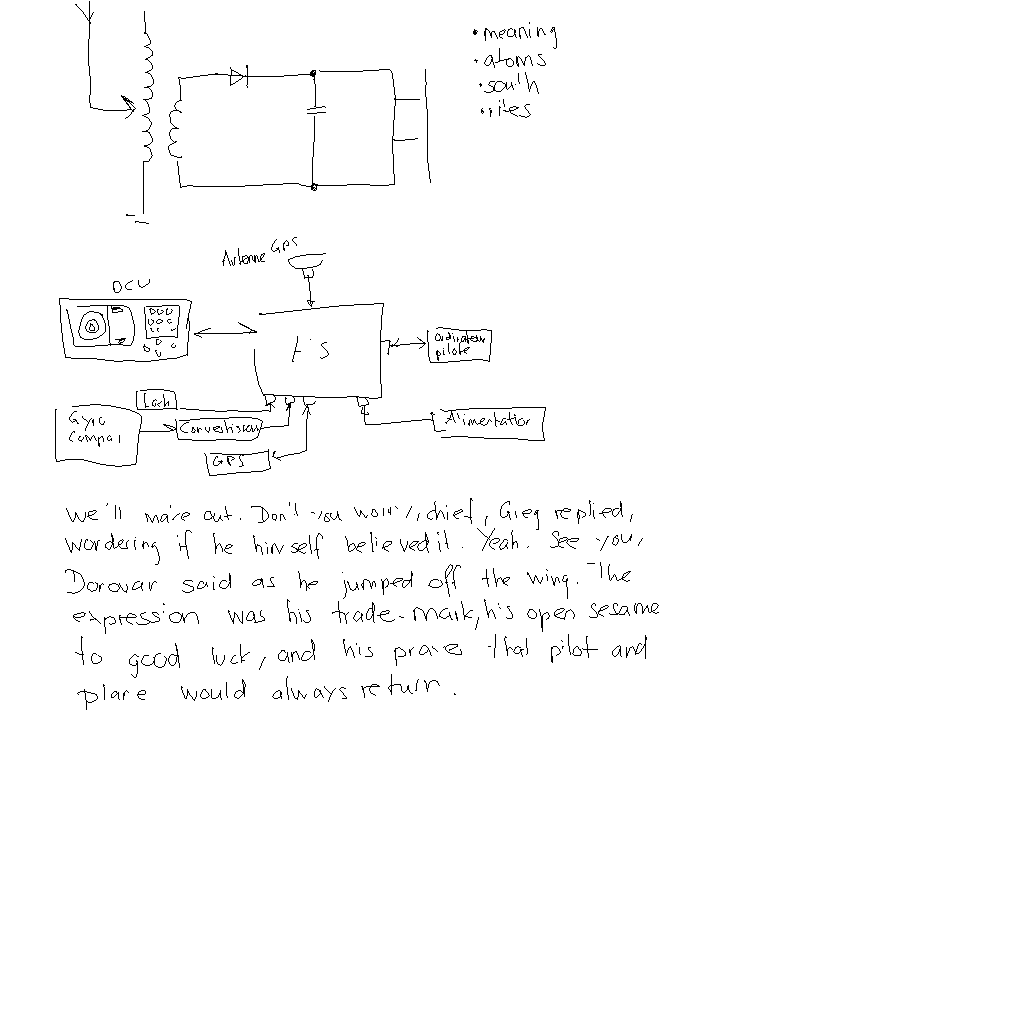 • meaning
• atoms
• south
• rites
Antenne GPS
DCU
Ordinateur
pilote
Loch
Gyro
Compas
Convertisseur
GPS
Alimentation
We'll make out. Don't you worry, chief, Greg replied,
wondering if he himself believed it. Yeah. See you,
Donovan said as he jumped off the wing. The
expression was his trade-mark, his open sesame
to good luck, and his prayer that pilot and
plane would always return.